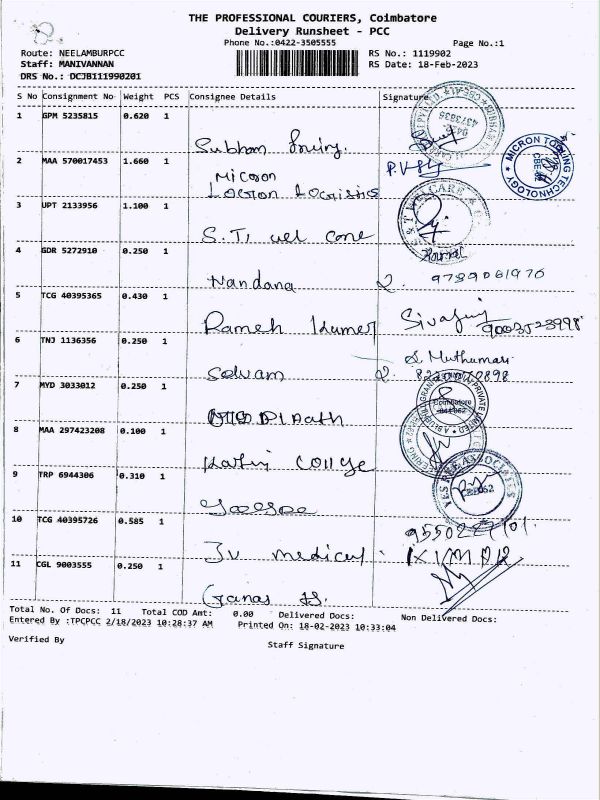 THE PROFESSIONAL COURIERS, Coimbatore
Delivery Runsheet - PCC
Phone No.:0422-3505555 Page No.:1
Route: NEELAMBURPCC RS No.: 1119902
Staff: MANIVANNAN RS Date: 18-Feb-2023
DRS No.: DCJB111990201
S No Consignment No Weight PCS Consignee Details Signature
1 GPM 5235815 0.620 1
Subham
2 MAA 570017453 1.660 1
Micron
Logistics
MICRON TECHNOLOGY
3 UPT 2133956 1.100 1
S.T. wel care
4 GDR 5272910 0.250 1
Nandana 9789061970
5 TCG 40395365 0.430 1
Ramesh Kumar
6 TNJ 1136356 0.250 1
S. Muthumari
Selvam
7 MYD 3033012 0.250 1
Coimbatore
8 MAA 297423208 0.100 1
College
9 TRP 6944306 0.310 1
YES ASSOCIATES
10 TCG 40395726 0.585 1
medical
11 CGL 9003555 0.250 1
Total No. Of Docs: 11 Total COD Amt: 0.00 Delivered Docs: Non Delivered Docs:
Entered By :TPCPCC 2/18/2023 10:28:37 AM Printed On: 18-02-2023 10:33:04
Verified By Staff Signature